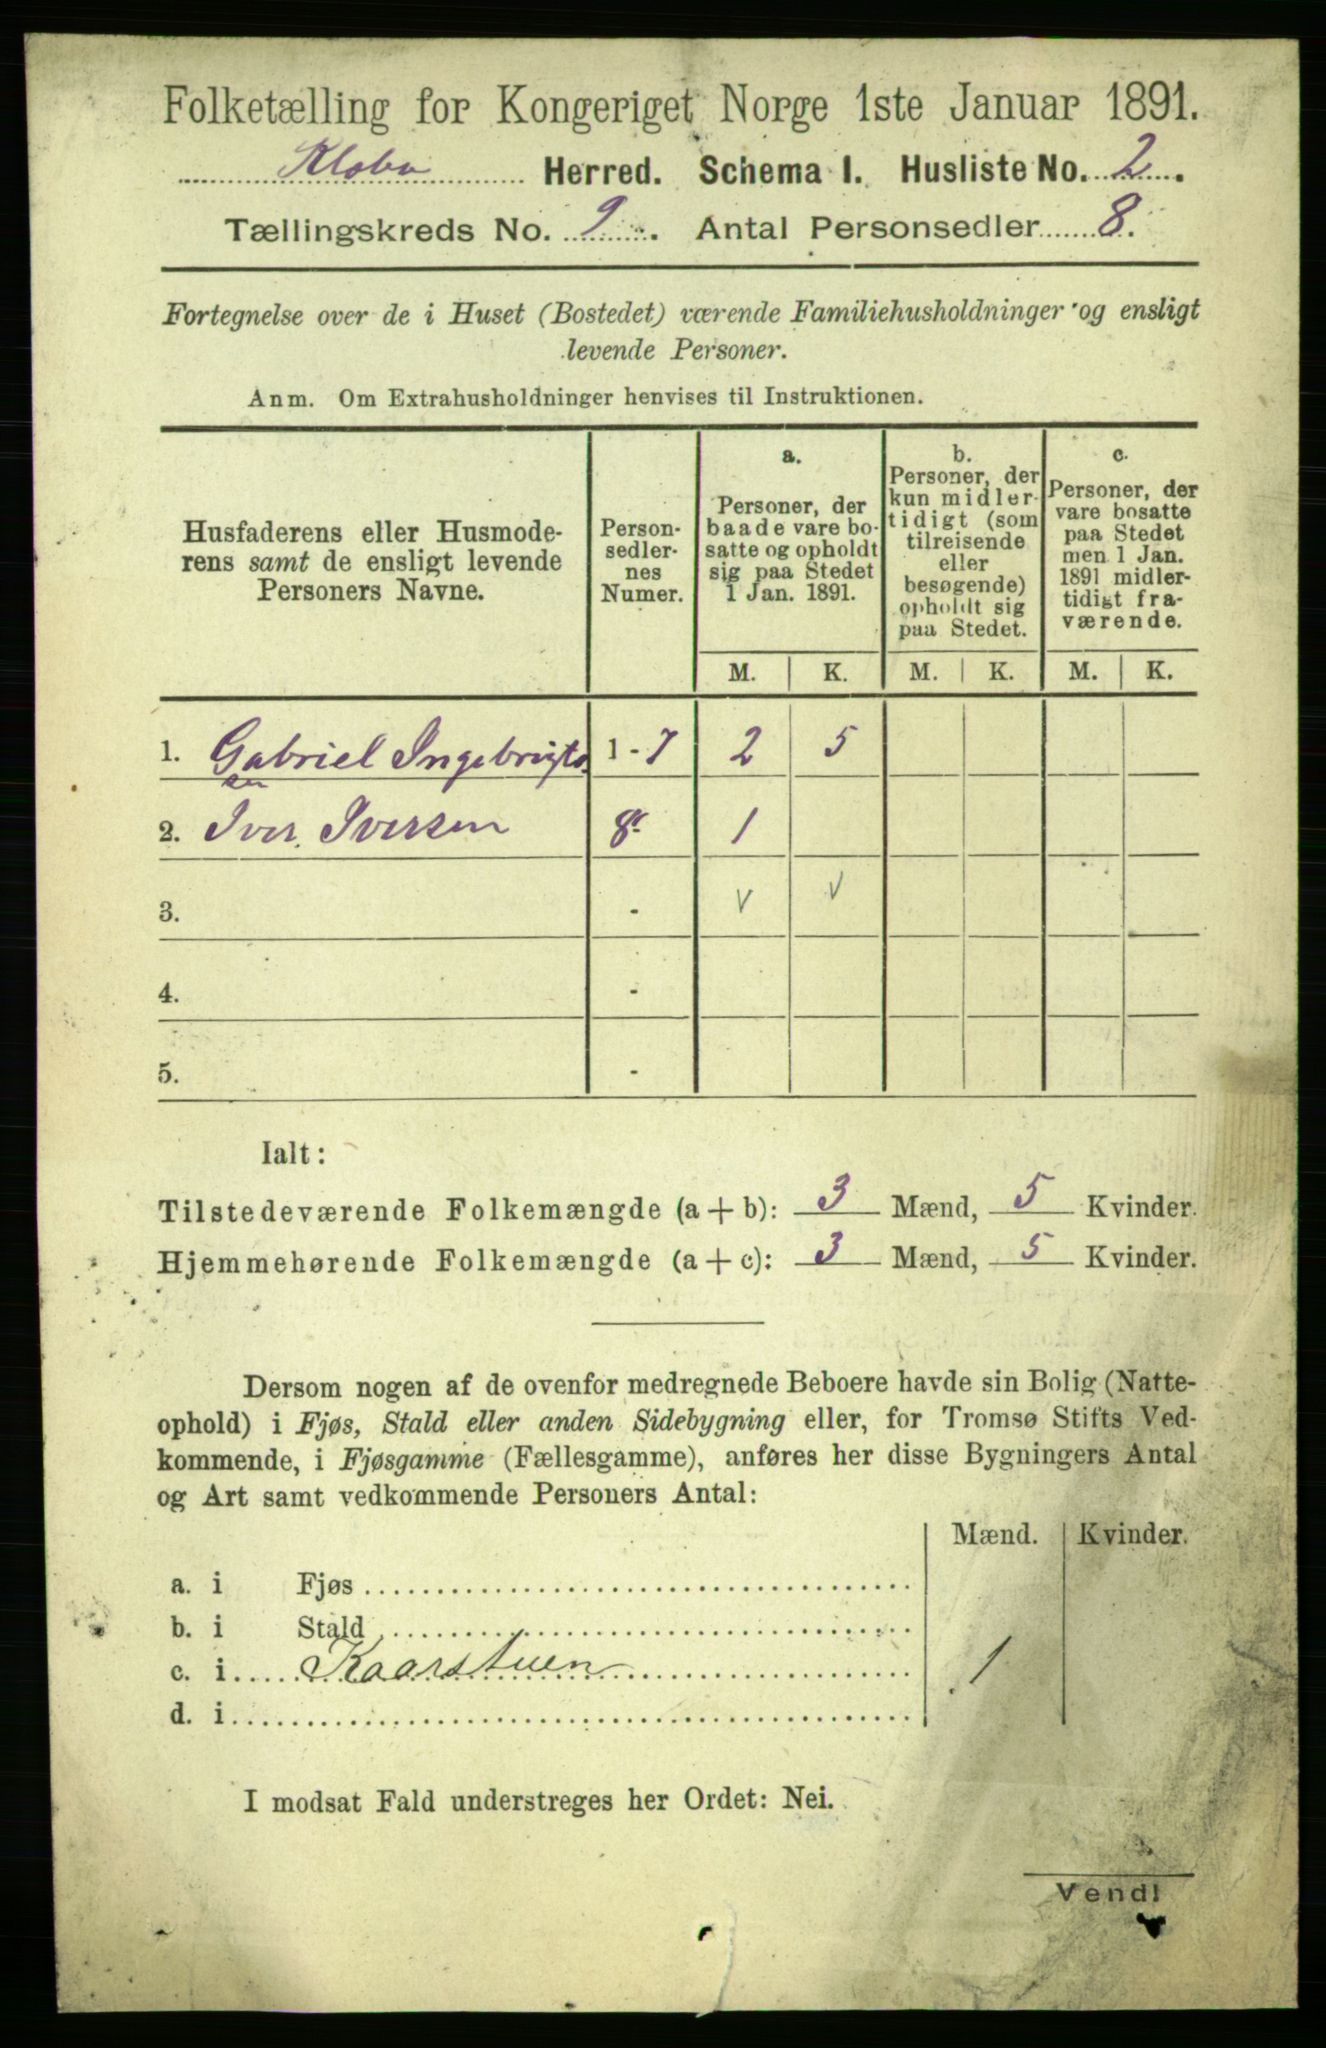 Folketælling for Kongeriget Norge 1ste Januar 1891.
Klæbu Herred. Schema I. Husliste No. 2.
Tællingskreds No. 9. Antal Personsedler 8.
Fortegnelse over de i Huset (Bostedet) værende Familiehusholdninger og ensligt
levende Personer.
Anm. Om Extrahusholdninger henvises til Instruktionen.
Husfaderens eller Husmode-
rens samt de ensligt levende
Personers Navne.
Person-
sedler-
nes
Numer.
a.
Personer, der
baade vare bo-
satte og opholdt
sig paa Stedet
1 Jan. 1891.
b.
Personer, der
kun midler-
tidigt (som
tilreisende
eller
besøgende)
opholdt sig
paa Stedet.
c.
Personer, der
vare bosatte
paa Stedet
men 1 Jan.
1891 midler-
tidigt fra-
værende.
M. K. M. K. M. K.
1. Gabriel Ingebrigts 1 - 7 2 5
sen
2. Iver Iversen 8 1
3. - v v
4. -
5. -
Ialt:
Tilstedeværende Folkemængde (a + b): 3 Mænd, 5 Kvinder.
Hjemmehørende Folkemængde (a + c): 3 Mænd, 5 Kvinder.
Dersom nogen af de ovenfor medregnede Beboere havde sin Bolig (Natte-
ophold) i Fjøs, Stald eller anden Sidebygning eller, for Tromsø Stifts Ved-
kommende, i Fjøsgamme (Fællesgamme), anføres her disse Bygningers Antal
og Art samt vedkommende Personers Antal:
Mænd. Kvinder.
a. i Fjøs
b. i Stald
c. i Kaarstuen 1
d. i
I modsat Fald understreges her Ordet: Nei.
Vend!